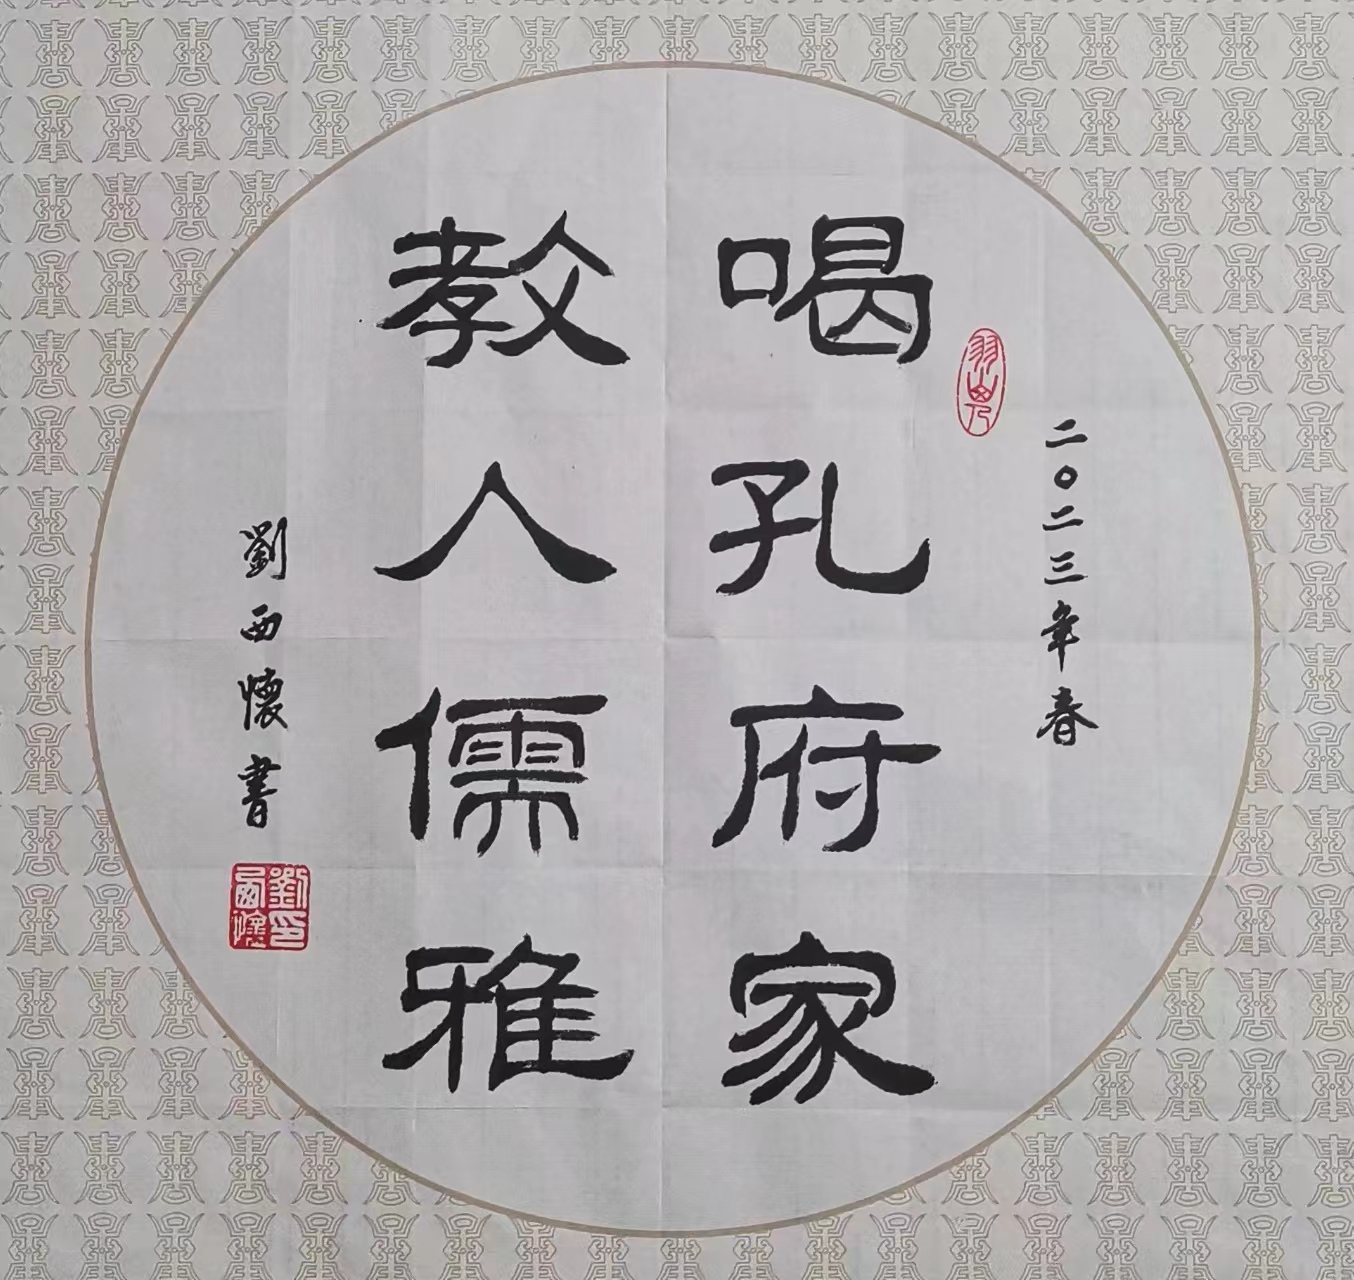 二〇二三年春
喝孔府家
教人儒雅
劉西懷書